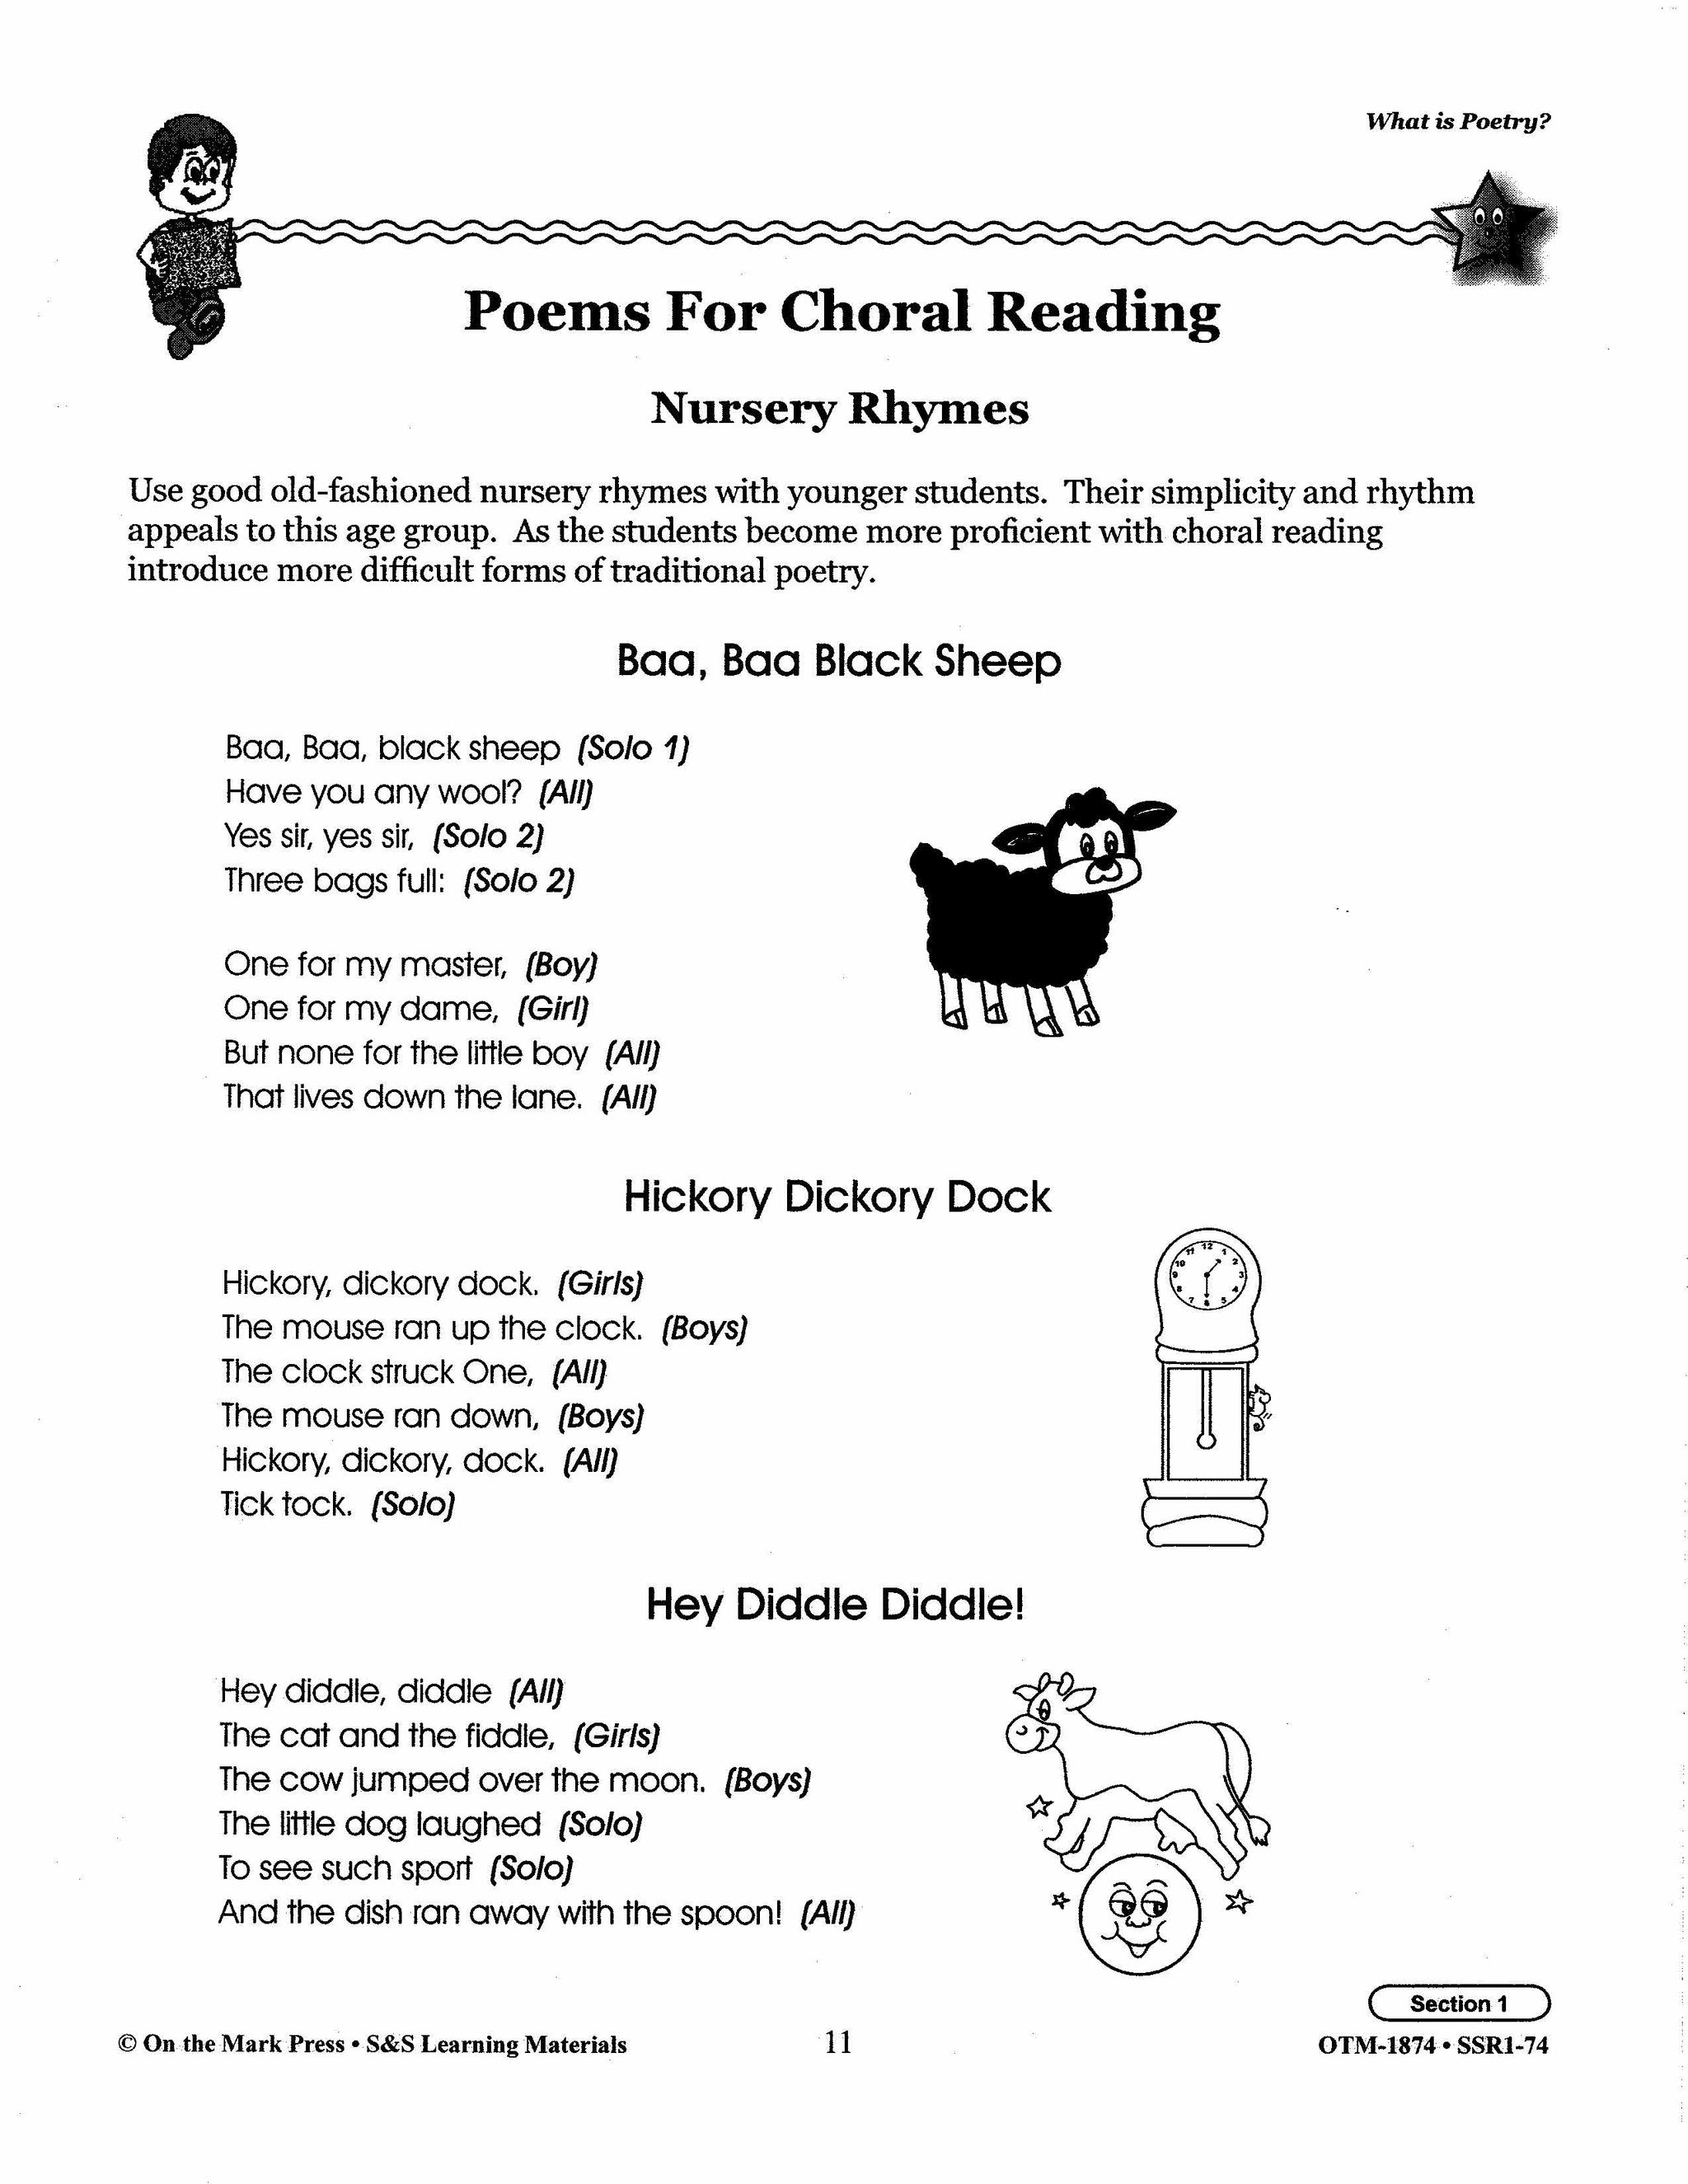 What is Poetry?
Poems For Choral Reading
Nursery Rhymes
Use good old-fashioned nursery rhymes with younger students. Their simplicity and rhythm
appeals to this age group. As the students become more proficient with choral reading
introduce more difficult forms of traditional poetry.
Baa, Baa Black Sheep
Baa, Baa, black sheep (Solo 1)
Have you any wool? (All)
Yes sir, yes sir, (Solo 2)
Three bags full: (Solo 2)
One for my master, (Boy)
One for my dame, (Girl)
But none for the little boy (All)
That lives down the lane. (All)
Hickory Dickory Dock
Hickory, dickory dock. (Girls)
The mouse ran up the clock. (Boys)
The clock struck One, (All)
The mouse ran down, (Boys)
Hickory, dickory, dock. (All)
Tick tock. (Solo)
12 1 2 3 4 5 6 7 8 9 10 11
Hey Diddle Diddle!
Hey diddle, diddle (All)
The cat and the fiddle, (Girls)
The cow jumped over the moon. (Boys)
The little dog laughed (Solo)
To see such sport (Solo)
And the dish ran away with the spoon! (All)
Section 1
© On the Mark Press • S&S Learning Materials
11
OTM-1874 • SSR1-74